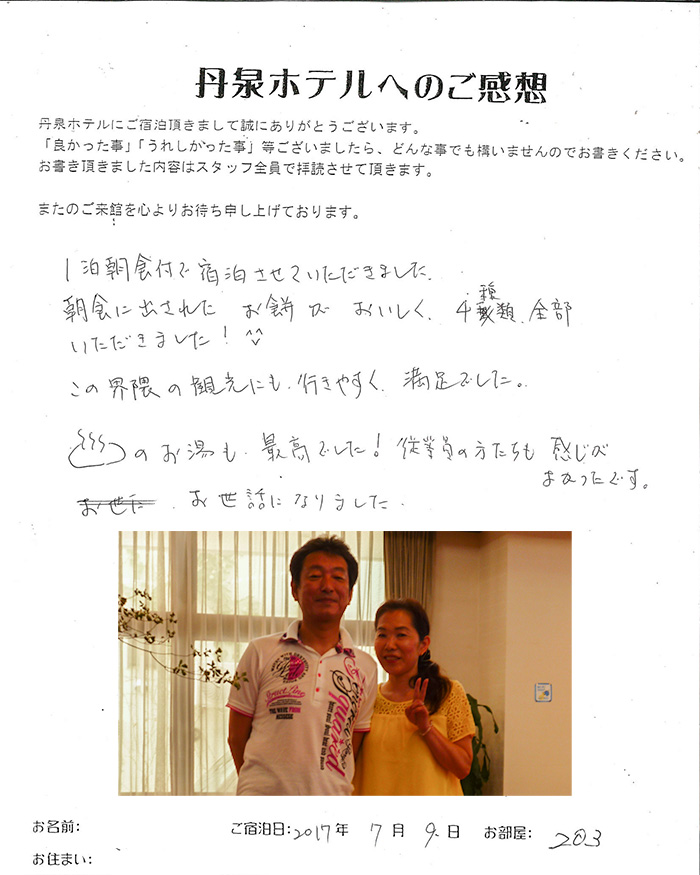 丹泉ホテルへのご感想
丹泉ホテルにご宿泊頂きまして誠にありがとうございます。
「良かった事」「うれしかった事」等ございましたら、どんな事でも構いませんのでお書きください。
お書き頂きました内容はスタッフ全員で拝読させて頂きます。
またのご来館を心よりお待ち申し上げております。
1泊朝食付で宿泊させていただきました.
朝食に出された お餅が おいしく、4種類、全部
いただきました! ^^
この界隈の観光にも、行きやすく、満足でした。
のお湯も、最高でした! 従業員の方たちも 感じが
よかったです。
お世话に お世話になりました.
お名前: ご宿泊日:2017年 7月 9日 お部屋: 203
お住まい: